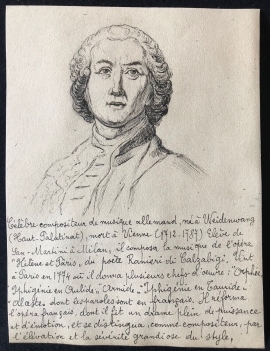 Célèbre compositeur de musique allemand, né à Weidenwang
(Haut-Palatinat), mort à Vienne (1712-1787) Élève de
San-Martini à Milan, il composa la musique de l'opéra
"Hélène et Pâris, du poète Ranieri di Calzabigi. Vint
à Paris en 1774 où il donna plusieurs chefs d'œuvre: "Orphée
"Iphigénie en Aulide", "Armide", "Iphigénie en Tauride"
"Alceste, dont les paroles sont en français. Il réforma
l'opéra français, dont il fit un drame plein de puissance
et d'émotion, et se distingua, comme compositeur, par
l'élévation et la sévérité grandiose du style,